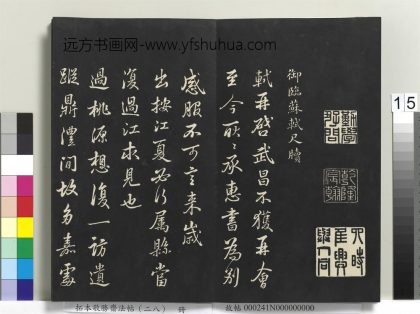 远方书画网-www.yfshuhua.com
勤學好問
乾隆宸翰
御臨蘇軾尺牘
軾再啓武昌不獲再會
至今耿耿承惠書為別
感服不可言來歲
出按江夏必行屬縣當
復過江求見也
過桃源想復一訪遺
蹤鼎澧間故多嘉處
15
拓本敬勝齋法帖(二八)
故帖 000241N000000000